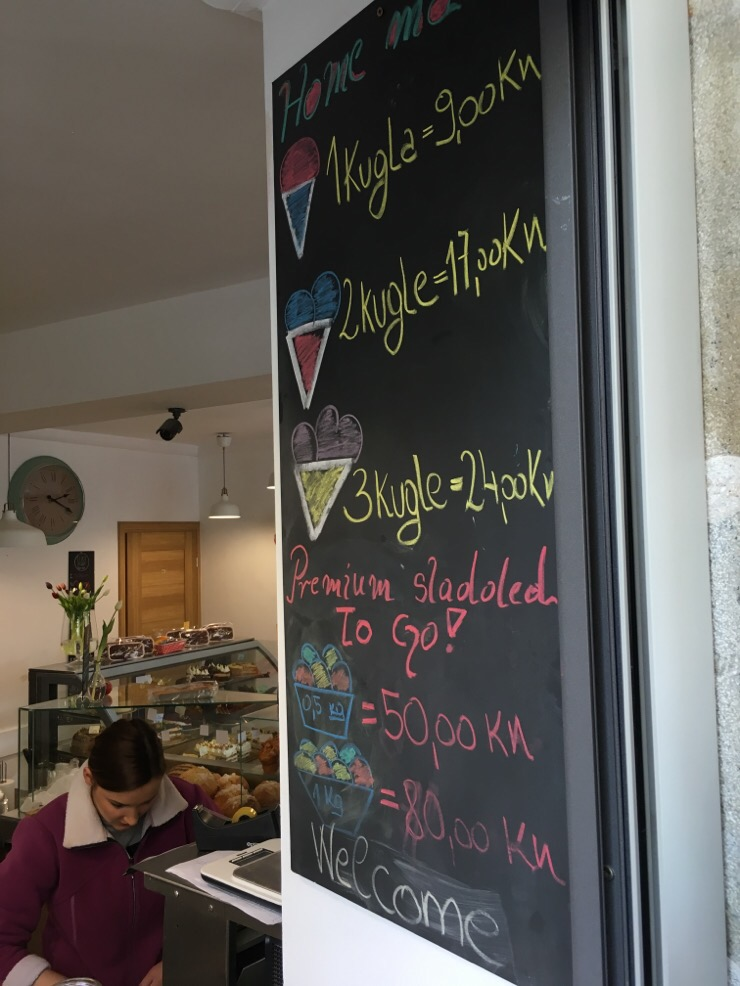 Home ma
1 Kugla = 9,00 Kn
2 Kugle = 17,00 Kn
3 Kugle = 24,00 Kn
Premium sladoled
To Go!
0,5 kg = 50,00 Kn
1 Kg = 80,00 Kn
Welcome